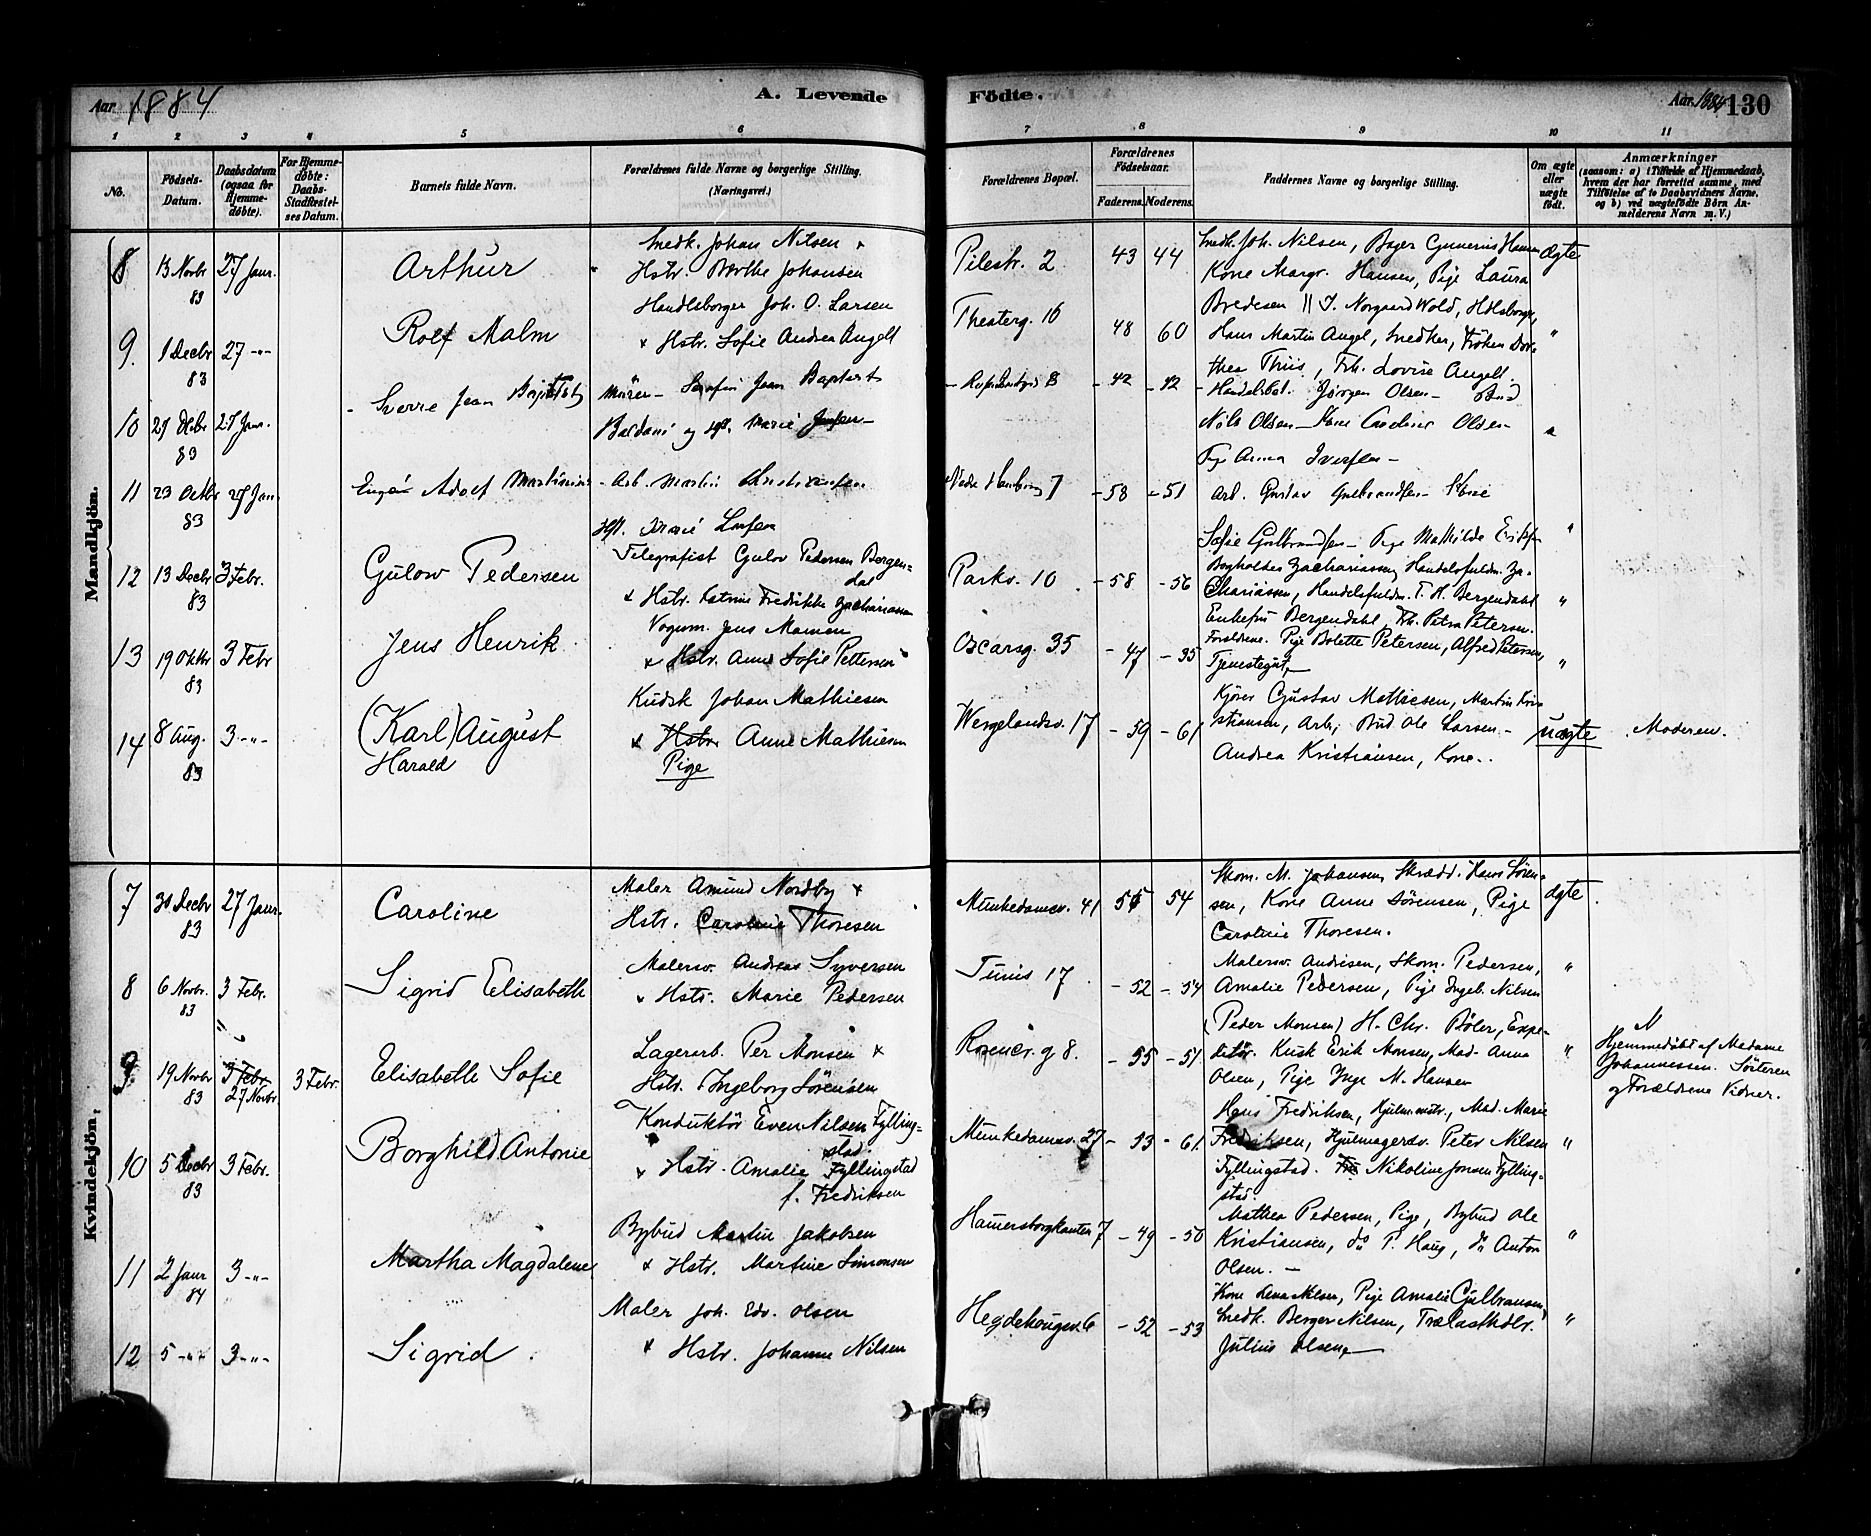 Aar 1884 A. Levende Födte. Aar 1884 130
1 2 3 4 5 6 7 8 9 10 11
No. Födsels-Datum. Daabsdatum (ogsaa for Hjemmedöbte). For Hjemmedöbte: Daabs-Stadfæstelses Datum. Barnets fulde Navn. Forældrenes fulde Navne og borgerlige Stilling. (Næringsvei.) Forældrenes Bopæl. Forældrenes Födselsaar. Faderens. Moderens. Faddernes Navne og borgerlige Stilling. Om ægte eller uægte födt. Anmærkninger (saasom: a) i Tilfælde af Hjemmedaab, hvem der har forrettet samme, med Tilföielse af to Daabsvidners Navne, og b) ved uægtefödte Börn Anmelderens Navn m. V.)
Mandkjön.
8 13 Novbr 83 27 Janr. Arthur
Snedk. Johan Nilsen +
Hstr. Berthe Johansen
Pilestr. 2 43 44
Snedk. Joh. Nilsen, Bager Gunerius Hansen
Kone Margr. Hansen, Pige Laura
Bredesen
ægte
9. 1 Decbr 83 27 -"- Rolf Malm
Handlsborger Joh. O. Larsen
+ Hstr. Sofie Andrea Angell
Theaterg. 16 48 60
J. Norgaard Wold, Hdlsborger,
Hans Martin Angel, Snedker, Fröken Dor-
thea Thiis, Frk. Lovise Angell.
"
10 29 Decbr 83 27 Janr. Sverre Jean Baptist
Murer Serafin Jean Baptist
Baldani og Hst. Marie Jensen
8 - 42 - 42
Handelsbet. Jörgen Olsen - Bud
Nils Olsen - Kone Caroline Olsen
Pige Anna Iversen -
"
11 23 Octbr 83 27 Jan. Eugén Adolf Martinius
Arb. Martin Christiansen
Hst. Marie Larsen
7 - 58 - 51
Arb. Gustav Gulbrandsen - Kone
Sofie Gulbrandsen - Pige Mathilde Eriksen
"
12 13 Decbr 83 3 Febr. Gulow Pedersen
Telegrafist Gulov Pedersen Bergen-
dal
+ Hstr. Katrine Fredrikke Zachariassen
Parkv. 10 - 58 - 56
Bogholder Zachariassen, Handelsfuldm. Za-
chariassen, Handelsfuldm. T. H. Bergendahl
Enkefru Bergendahl, Frk. Petra Petersen.
"
13 19 Oktbr 83 3 Febr Jens Henrik
Vognm. Jens Mamen
+ Hstr. Anne Sofie Pettersen
Oscarsg. 35 - 47 - 35
Forældrene. Pige Bolette Petersen, Alfred Petersen,
Tjenestegut,
"
14 8 Aug. 83 3 -"- (Karl) August
Harald
Kudsk Johan Mathiesen
+ Hstr. Anne Mathiesen
Pige
Wergelandsv. 17 - 59 - 61
Kjörer Gustav Mathiesen, Martin Kri-
stiansen, Arb., Bud Ole Larsen. -
Andrea Kristiansen, Kone.
uægte Moderen.
Kvindekjön.
7 30 Decbr 83 27 Janr. Caroline
Maler Amund Nordby +
Hstr. Caroline Thoresen
Munkedamsv. 41 54
Skom. M. Johansen, Skrædd. Hans Sören-
sen, Kone Anne Sörensen, Pige
Caroline Thoresen.
ægte
8 6 Novbr. 83 3 Febr. Sigrid Elisabeth
Malersv. Andreas Syversen
+ Hstr. Marie Pedersen
Tunis 17 - 52 - 54
Malersv. Andresen, Skom. Pedersen,
Amalie Pedersen, Pige Ingeb. Nilsen
"
9 19 Novbr 83 3 Febr 27 Novbr 3 Febr. Elisabeth Sofie
Lagerarb. Per Monsen +
Hstr. Ingeborg Sörensen
g 8. - 55 - 51
(Peder Monsen) H. Chr. Böler, Expe-
ditör. Kusk Erik Monsen, Mad. Anna
Olsen, Pige Inge M. Hansen
"
Hjemmedöbt af Madame
Johannessen. Sösteren
og Forældrene Vidner.
10 5 Decbr 83 3 Febr. Borghild Antonie
Konduktör Even Nilsen Fylling-
stad.
+ Hstr. Amalie Fyllingstad
f. Fredriksen
Munkedamsv. 27 - 53 - 61.
Hans Fredriksen, Hjulmstr., Mad. Marie
Fredriksen, Hjulmagersv. Peter Nilsen
Fyllingstad. Nikoline Jonsen Fylling-
stad.
"
11 2 Janr 84 3 -"- Martha Magdalene
Bybud Martin Jakobsen
+ Hstr. Martine Simonsen
Hamersborgkanten 7 - 49 - 50
Mathea Pedersen, Pige, Bybud Ole
Kristiansen, do P. Haug, do Anton
Olsen. -
"
12 5 -"- 3 -"- Sigrid.
Maler Joh. Edv. Olsen
+ Hstr. Johanne Nilsen
Hegdehougsv. 6 - 52 - 53
Kone Lena Nilsen, Pige Amalie Gulbransen,
Snedk. Berger Nilsen, Trælasthdlr.
Julius Olsen,
"